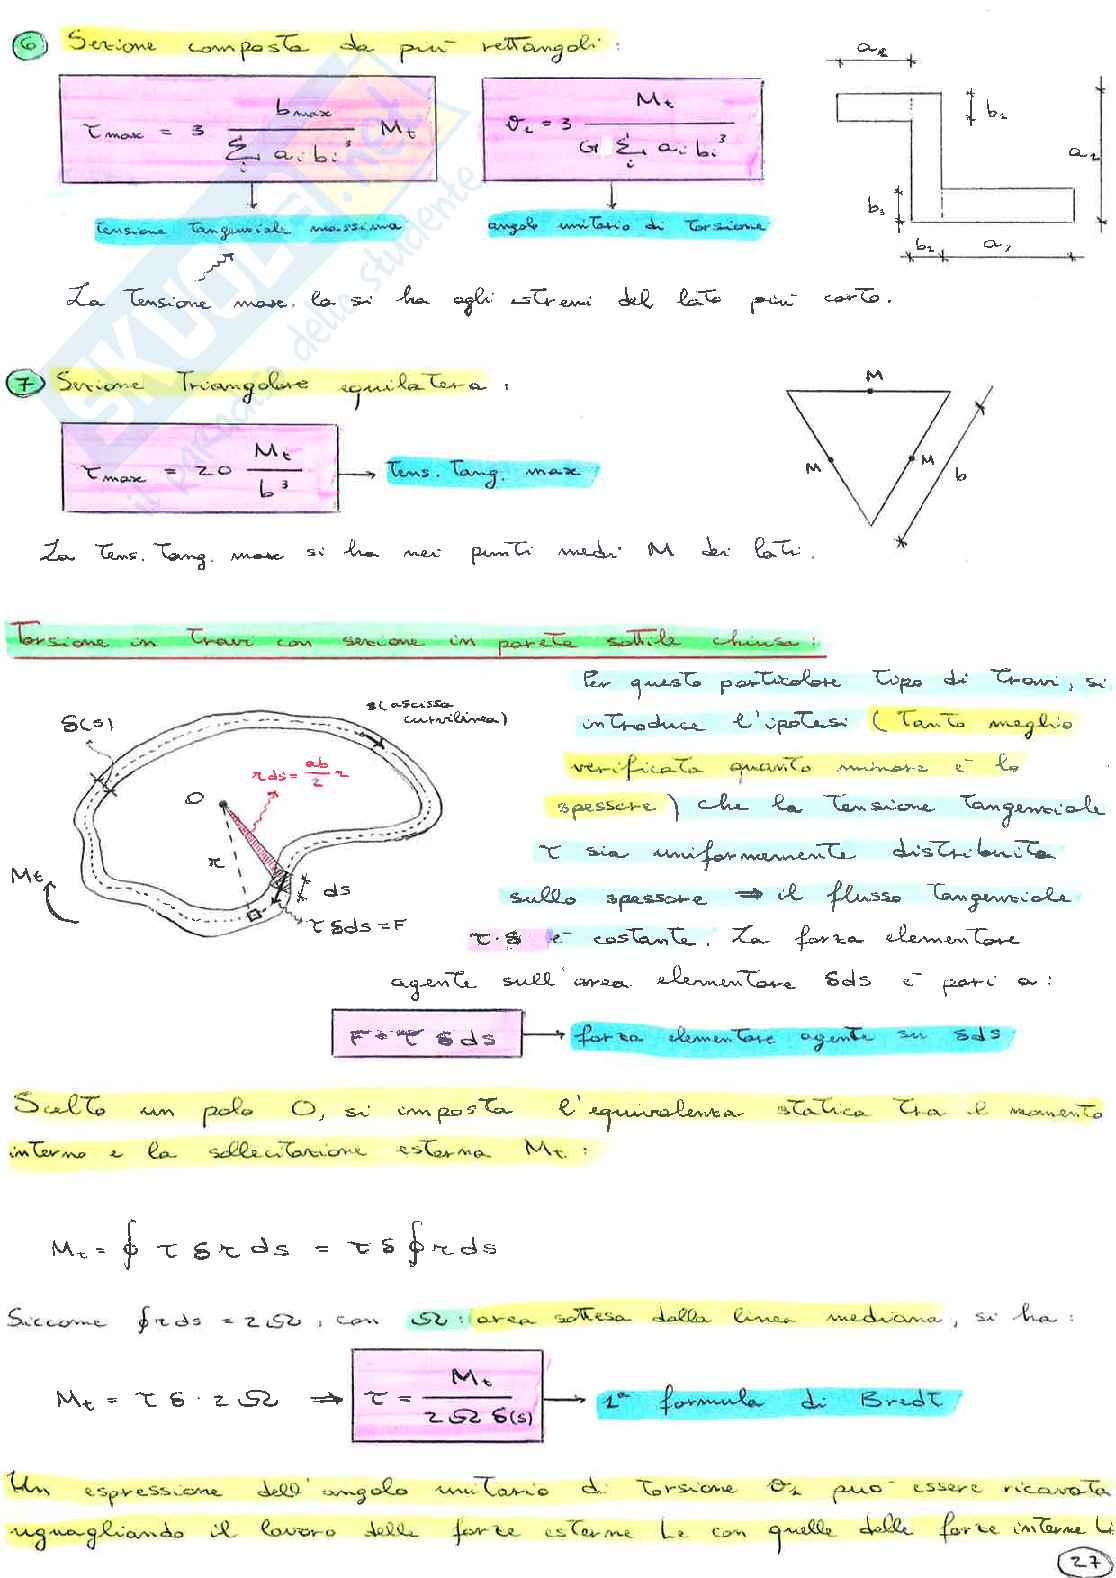 6 Sezione composta da più rettangoli:
τmax = 3 bmax / Σi ai bi³ Mt
θz = 3 Mt / G Σi ai bi³
tensione tangenziale massima
angolo unitario di torsione
a2
b2
a2
b3
b2
a3
La tensione max. la si ha agli estremi del lato più corto.
7 Sezione triangolare equilatera:
τmax = 20 Mt / b³
tens. tang. max
M
M
M
b
La tens. tang. max si ha nei punti medi M dei lati.
Torsione in travi con sezione in parete sottile chiusa:
Per questo particolare tipo di travi, si
introduce l'ipotesi (tanto meglio
verificata quanto minore è lo
spessore) che la tensione tangenziale
τ sia uniformemente distribuita
sullo spessore ⇒ il flusso tangenziale
τ·δ è costante. La forza elementare
agente sull'area elementare δds è pari a:
δ(s)
s (ascissa
curvilinea)
r ds = ab/2 2
O
r
Mt
ds
τ δ ds = F
F = τ δ ds
forza elementare agente su δds
Scelto un polo O, si imposta l'equivalenza statica tra il momento
interno e la sollecitazione esterna Mt:
Mt = ∮ τ δ r ds = τ δ ∮ r ds
Siccome ∮ r ds = 2Ω, con Ω: area sottesa dalla linea mediana, si ha:
Mt = τ δ · 2Ω ⇒ τ = Mt / 2Ω δ(s)
1ª formula di Bredt
Un espressione dell'angolo unitario di torsione θz può essere ricavata
uguagliando il lavoro delle forze esterne Le con quelle delle forze interne Li
27
SKUOLA.net
il paradiso dello studente